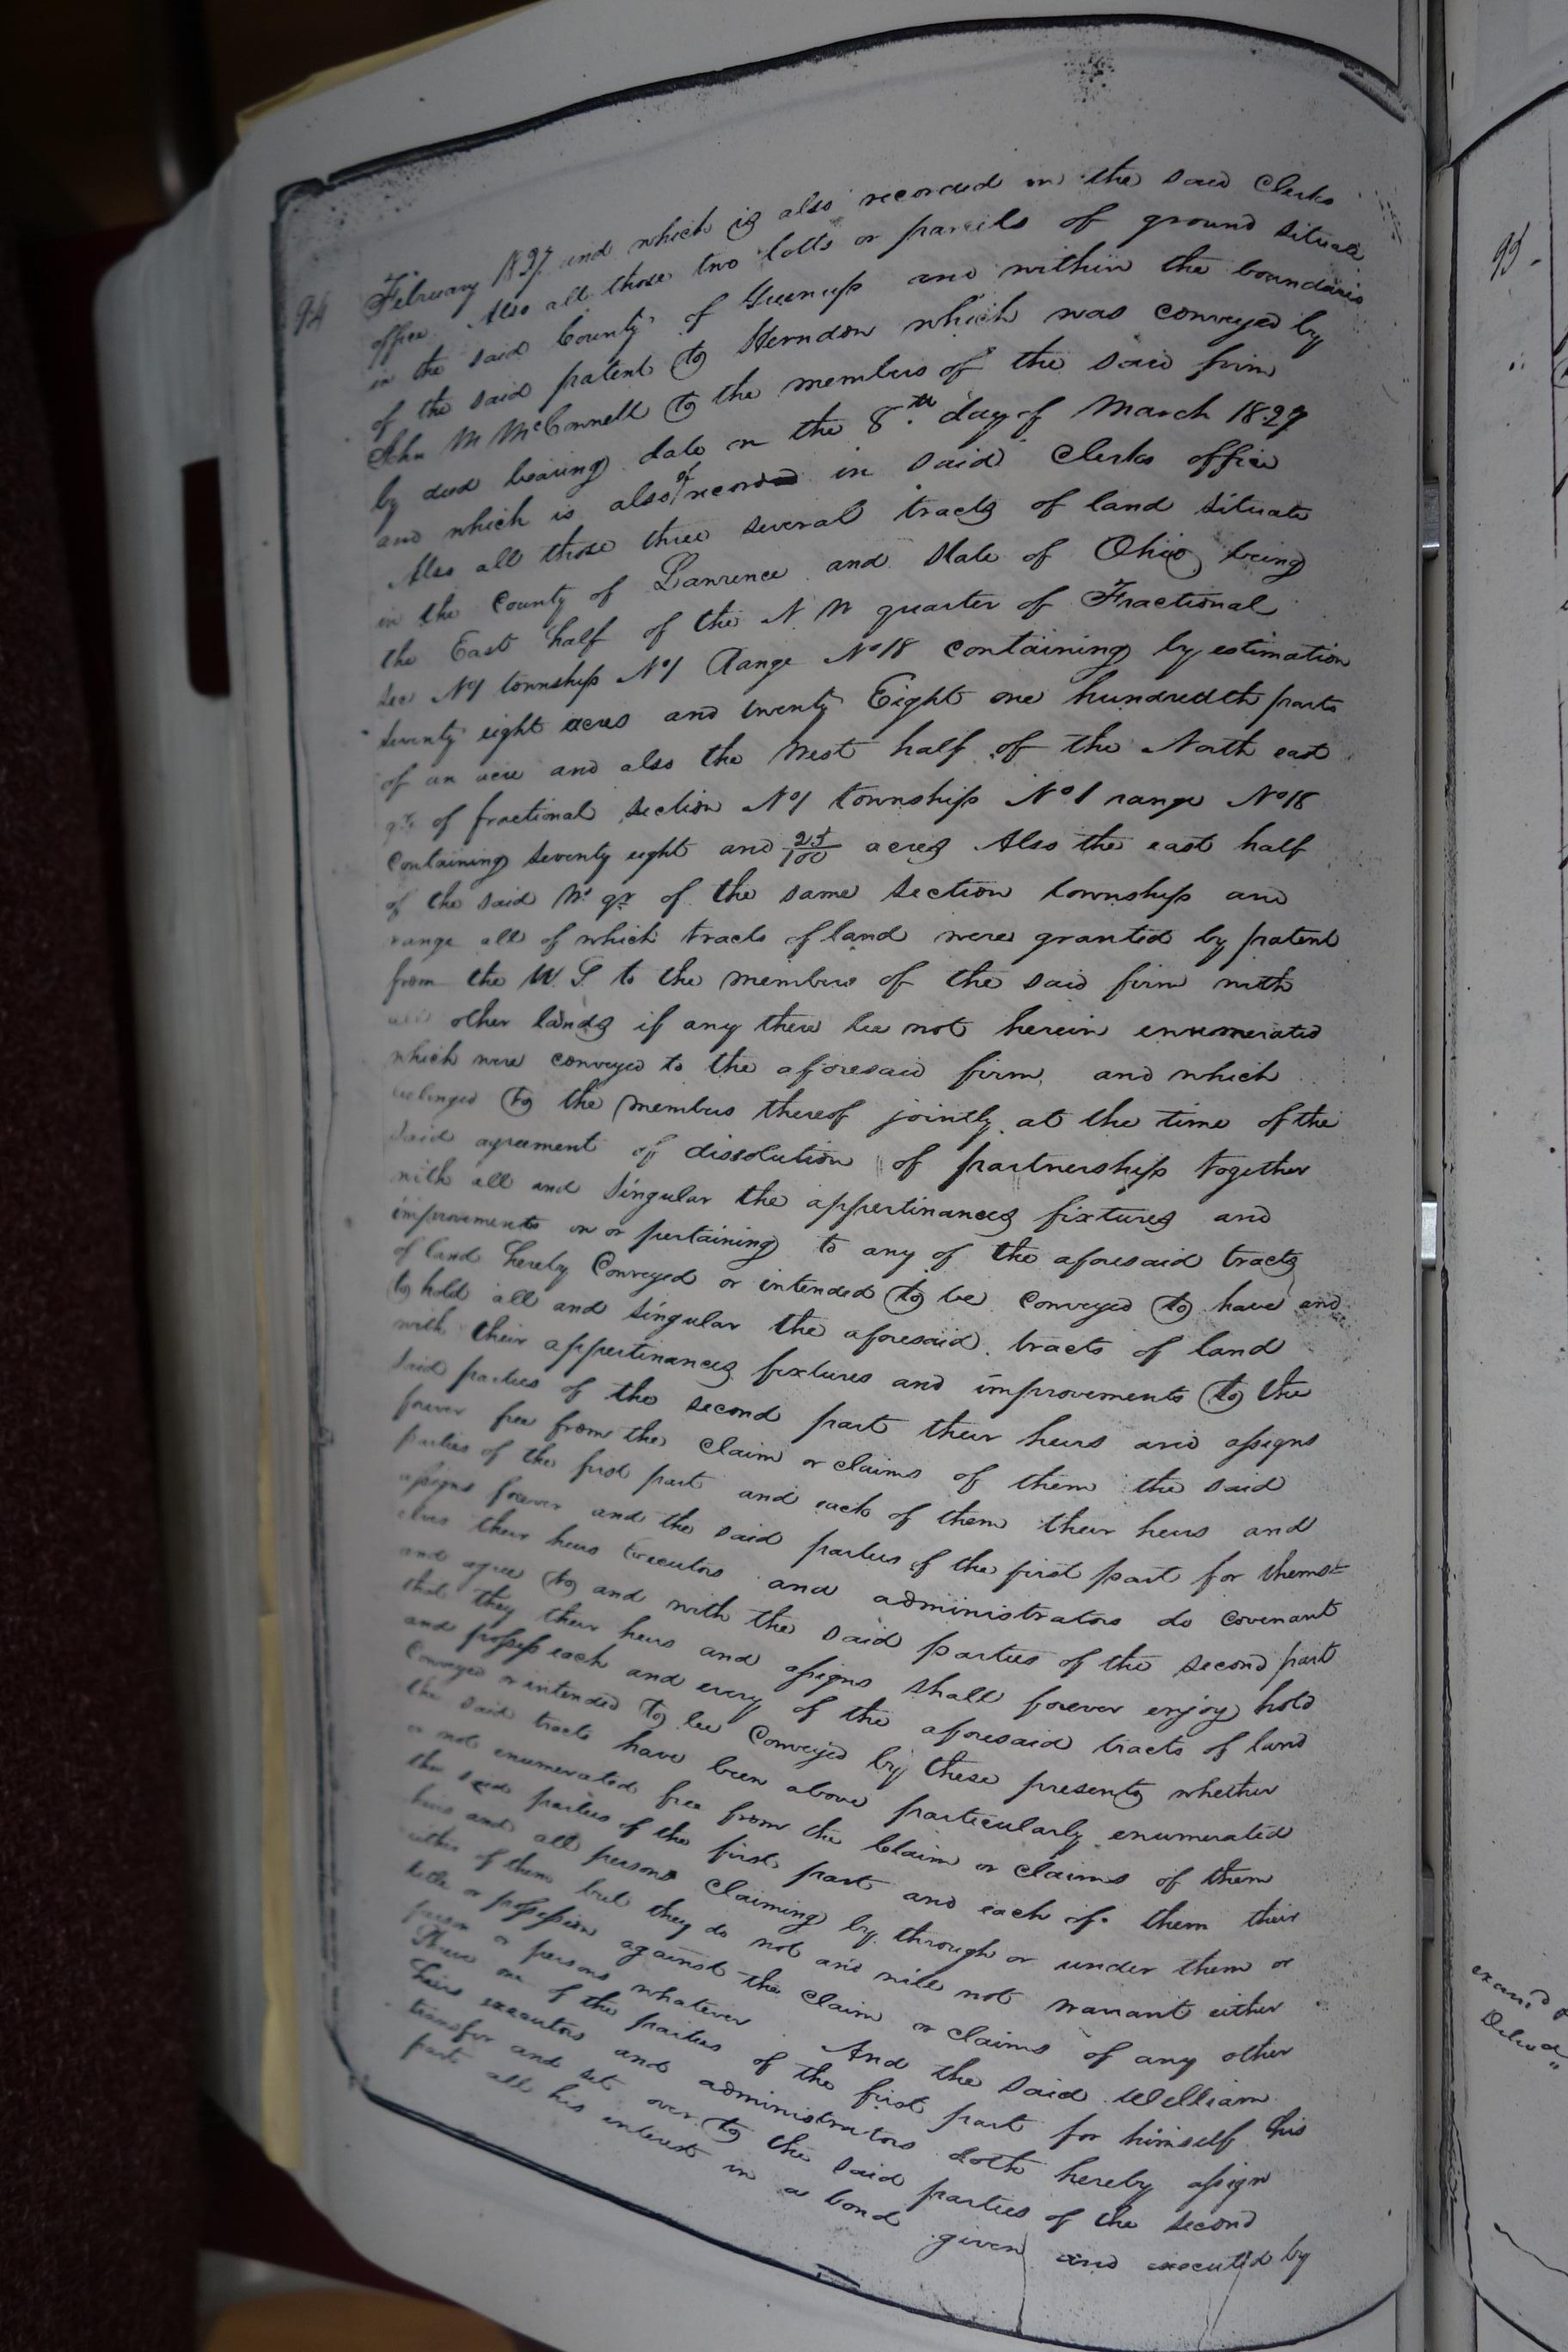 94
February 1827 and which is also recorded in the said Clerks
office. Also all those two lotts or parcels of ground situate
in the said County of Greenup and within the boundaries
of the said patent to Herndon which was conveyed by
John M McConnell to the members of the said firm
by deed bearing date on the 8th day of March 1827
and which is also of record in said Clerks office
Also all those three several tracts of land situate
in the County of Lawrence and State of Ohio being
the East half of the N W quarter of Fractional
Sec No1 township No1 Range No18 containing by estimation
Seventy eight acres and twenty Eight one hundredth parts
of an acre and also the West half of the North east
qr. of fractional section No1 township No1 range No18
Containing Seventy eight and 25/100 acres Also the east half
of the said qr of the same section township and
range all of which tracts of land were granted by patent
from the U. S. to the members of the said firm with
all other lands if any there be not herein enumerated
which were conveyed to the aforesaid firm, and which
belonged to the members thereof jointly at the time of the
said agreement of dissolution of partnership together
with all and Singular the appertinances fixtures and
improvements on or pertaining to any of the aforesaid tracts
of land hereby Conveyed or intended to be conveyed to have and
to hold all and singular the aforesaid tracts of land
with their appertinances fixtures and improvements to the
said parties of the second part their heirs and assigns
forever free from the claim or claims of them the said
parties of the first part and each of them their heirs and
assigns forever and the said parties of the first part for thems=
elves their heirs Executors and administrators do covenant
and agree to and with the said parties of the second part
that they their heirs and assigns shall forever enjoy hold
and possess each and every of the aforesaid tracts of land
Conveyed or intended to be Conveyed by these presents whether
the said tracts have been above particularly enumerated
or not enumerated free from the Claim or claims of them
the said parties of the first part and each of them their
heirs and all persons Claiming by through or under them or
either of them but they do not and will not warrant either
title or possession against the claim or claims of any other
person or persons whatever. And the said William
Shreve one of the parties of the first part for himself his
heirs executors and administrators doth hereby assign
transfer and set over to the said parties of the second
part all his interest in a bond given and executed by
95.